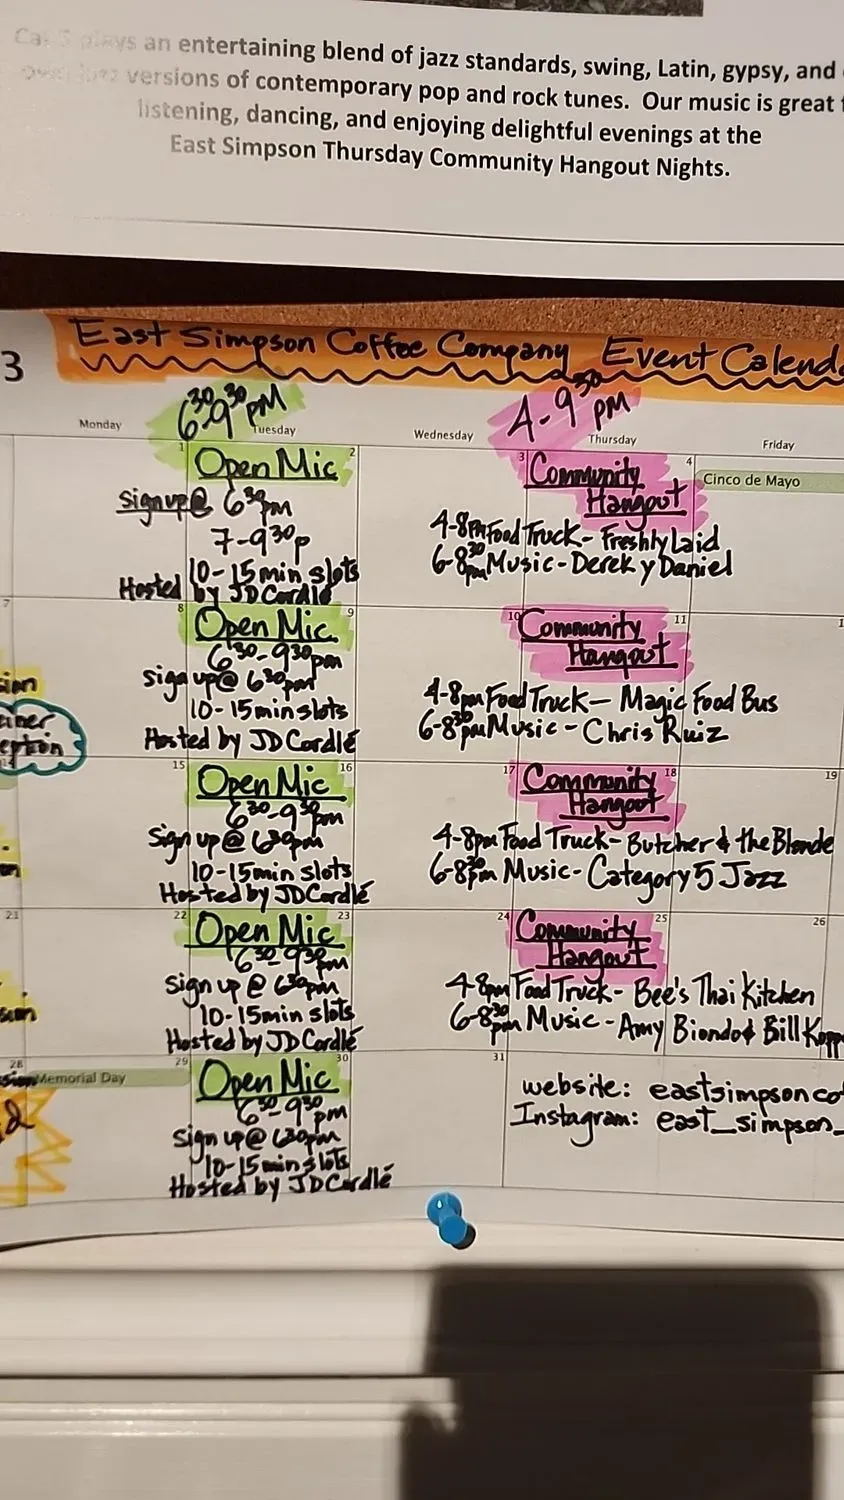 plays an entertaining blend of jazz standards, swing, Latin, gypsy, and
versions of contemporary pop and rock tunes. Our music is great
listening, dancing, and enjoying delightful evenings at the
East Simpson Thursday Community Hangout Nights.
3
East Simpson Coffee Company Event Calend
630-930 PM
4-930 PM
Monday
Tuesday
Wednesday
Thursday
Friday
1
Open Mic
2
Sign up @ 630pm
7-930p
10-15 min slots
Hosted by JD Cordlé
3
Community
Hangout
4
Cinco de Mayo
4-8pm Food Truck- Freshly Laid
6-830pm Music- Derek y Daniel
7
8
Open Mic
9
630-930pm
sign up @ 630pm
10-15 min slots
Hosted by JD Cordlé
10
Community
Hangout
11
1
4-8pm Food Truck- Magic Food Bus
6-830pm Music- Chris Ruiz
sion
eption
14
15
Open Mic
16
630-930pm
Sign up @ 630pm
10-15 min slots
Hosted by JD Cordlé
17
Community
Hangout
18
19
4-8pm Food Truck- Butcher & the Blonde
6-830pm Music- Category 5 Jazz
21
22
Open Mic
23
630-930pm
Sign up @ 630pm
10-15 min slots
Hosted by JD Cordlé
24
Community
Hangout
25
26
4-8pm Food Truck- Bee's Thai Kitchen
6-830pm Music- Amy Biondo & Bill Kopp
28
Memorial Day
29
Open Mic
30
630-930pm
Sign up @ 630pm
10-15 min slots
Hosted by JD Cordlé
31
website: eastsimpsonco
Instagram: east_simpson_